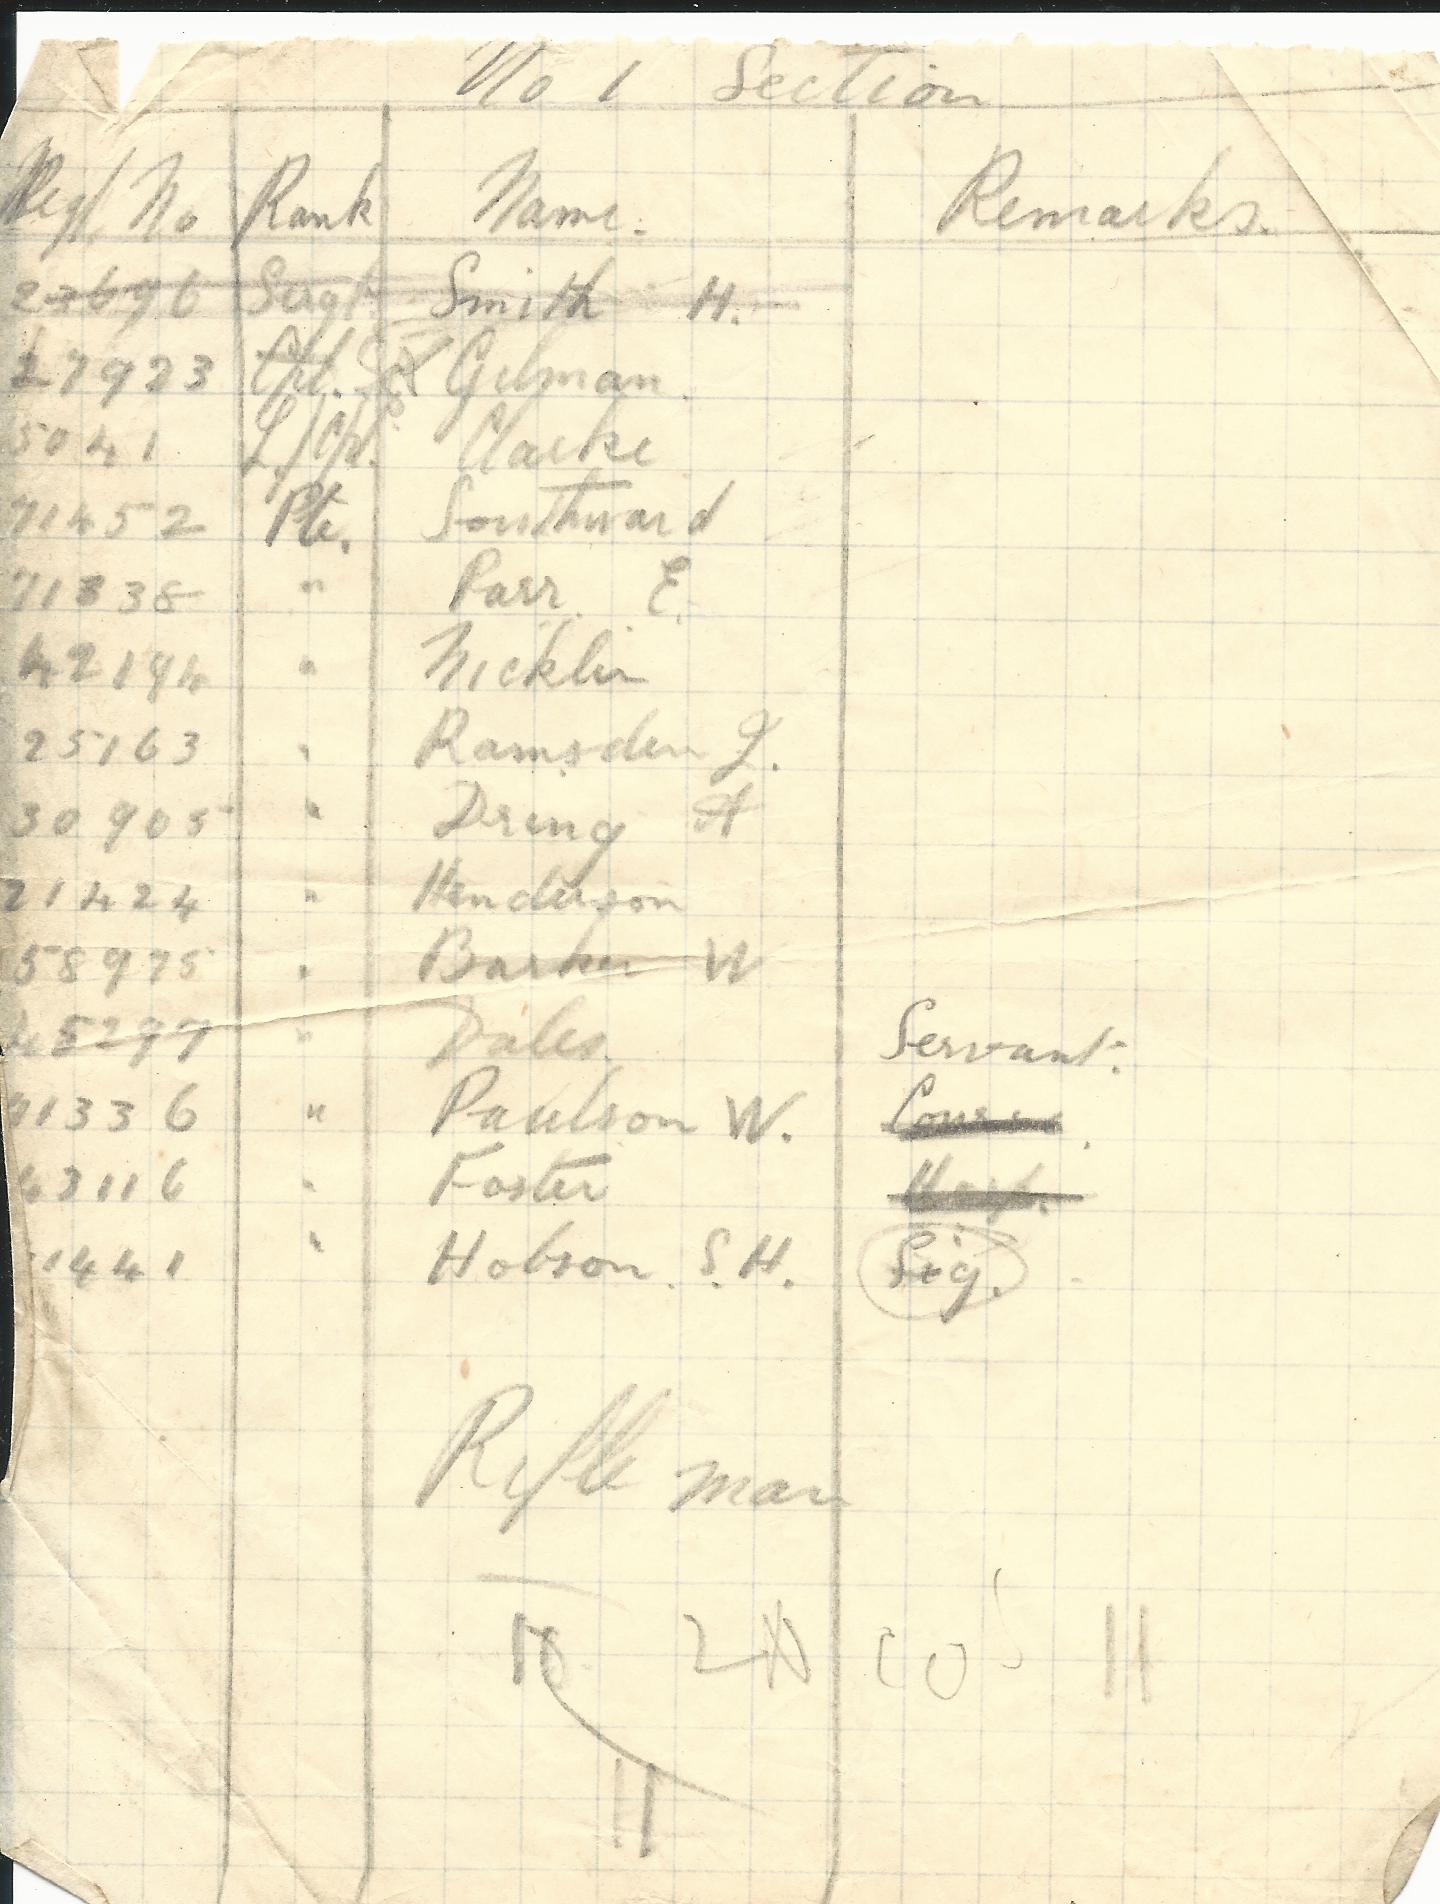 No 1 Section
Reg/ No Rank Name. Remarks.
23696 Sergt. Smith H.
27923 Cpl. Gilman.
5041 L/Cpl. Clarke
71452 Pte. Southward
71338 " Parr. E.
42194 " Nicklin
25163 " Ramsden L.
30905 " Dring A
21424 " Henderson
58975 " Barker W
45297 " Dales. Servant.
71336 " Paulson W.
43116 " Foster Hosp.
1441 " Hobson. S.H. Sig.
Rifle man
2 NCO'S 11
11